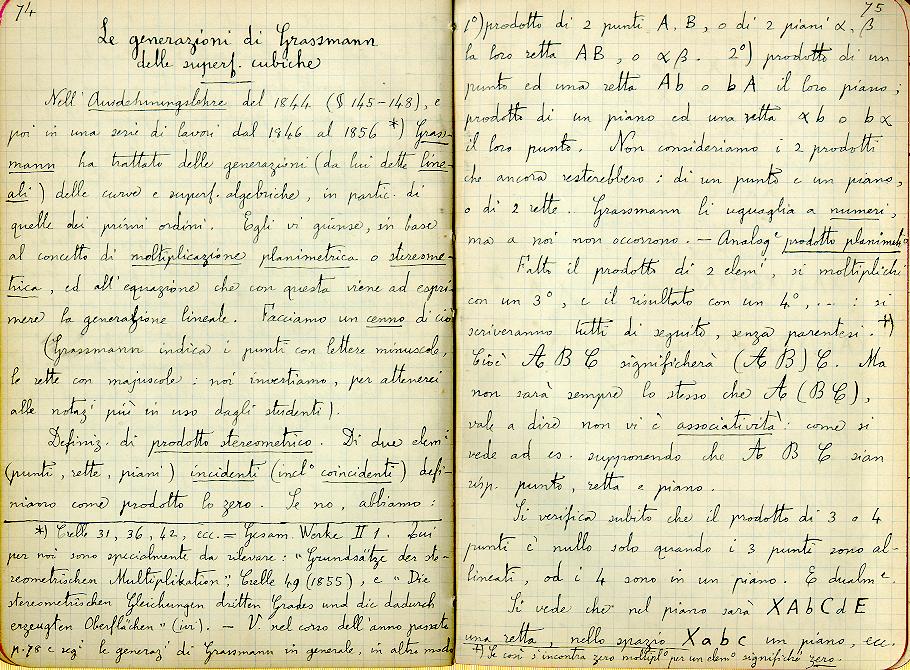 74
Le generazioni di Grassmann
delle superf. cubiche
Nell'Ausdehnungslehre del 1844 (§ 145-148), e
poi in una serie di lavori dal 1846 al 1856 *) Grass-
mann ha trattato delle generazioni (da lui dette line-
ali) delle curve e superf. algebriche, in partic. di
quelle dei primi ordini. Egli vi giunse, in base
al concetto di moltiplicazione planimetrica o stereome-
trica, ed all'equazione che con questa viene ad espri-
mere la generazione lineale. Facciamo un cenno di ciò
(Grassmann indica i punti con lettere minuscole,
le rette con majuscole: noi invertiamo, per attenerci
alle notazi più in uso dagli studenti).
Definiz. di prodotto stereometrico. Di due elemi
(punti, rette, piani) incidenti (inclo coincidenti) defi-
niamo come prodotto lo zero. Se no, abbiamo:
*) Crelle 31, 36, 42, ecc. = Gesam. Werke II 1. Qui
per noi sono specialmente da rilevare: "Grundsätze der ste-
reometrischen Multiplikation", Crelle 49 (1855), e "Die
stereometrischen Gleichungen dritten Grades und die dadurch
erzeugten Oberflächen" (ivi). — V. nel corso dell'anno passato
p. 78 e segi le generazi di Grassmann in generale, in altro modo
75
1°) prodotto di 2 punti A, B, o di 2 piani α, β
la loro retta AB, o αβ. 2°) prodotto di un
punto ed una retta Ab o bA il loro piano;
prodotto di un piano ed una retta αb o bα
il loro punto. Non consideriamo i 2 prodotti
che ancora resterebbero: di un punto e un piano,
o di 2 rette. Grassmann li uguaglia a numeri,
ma a noi non occorrono. — Analoge prodotto planimetco
Fatto il prodotto di 2 elemi, si moltiplichi
con un 3°, e il risultato con un 4°, ...: si
scriveranno tutti di seguito, senza parentesi. †)
Cioè A B C significherà (A B) C. Ma
non sarà sempre lo stesso che A (B C),
vale a dire non vi è associatività: come si
vede ad es. supponendo che A B C sian
risp. punto, retta e piano.
Si verifica subito che il prodotto di 3 o 4
punti è nullo solo quando i 3 punti sono al-
lineati, od i 4 sono in un piano. E dualme.
Si vede che nel piano sarà X A b C d E
una retta, nello spazio X a b c un piano, ecc.
†) Se così s'incontra zero moltiplo per un elemo significhi zero.